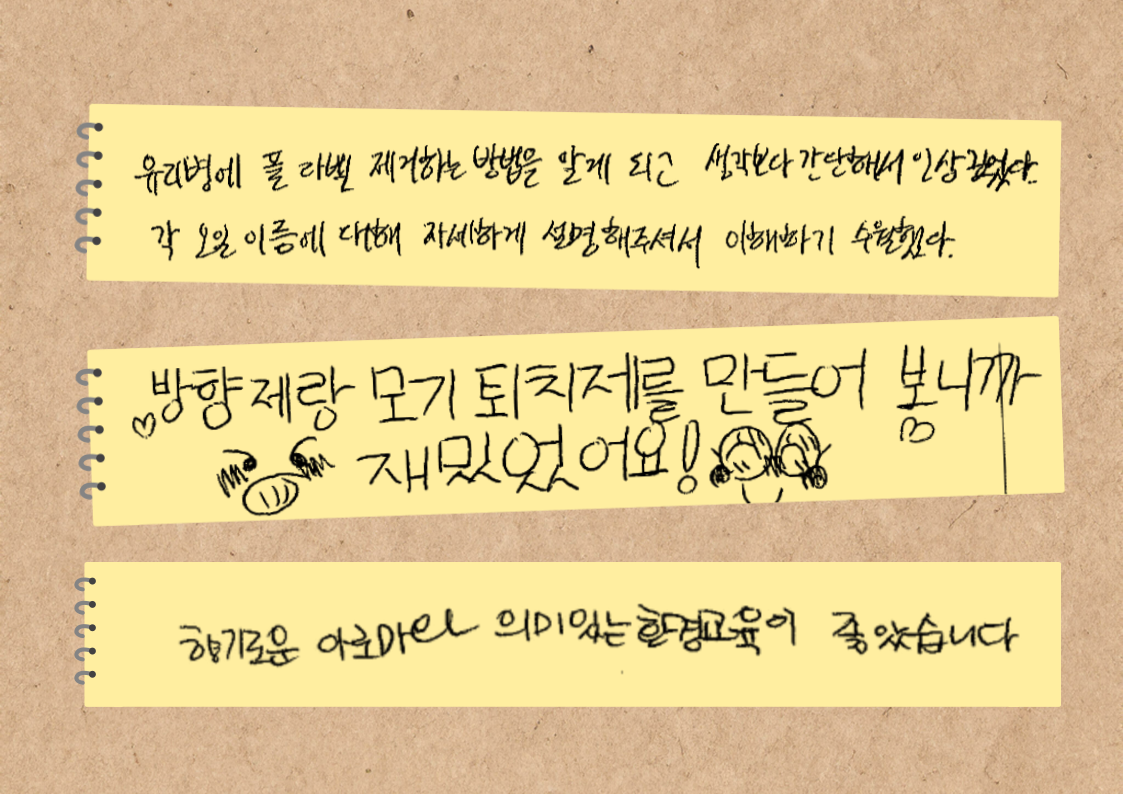 유리병에 풀 라벨 제거하는 방법을 알게 되고 생각보다 간단해서 인상 깊었다.
각 오일 이름에 대해 자세하게 설명해주셔서 이해하기 수월했다.
방향제랑 모기 퇴치제를 만들어 봄니까
재밌있어요!
향기로운 아로마와 의미있는 환경교육이 좋았습니다